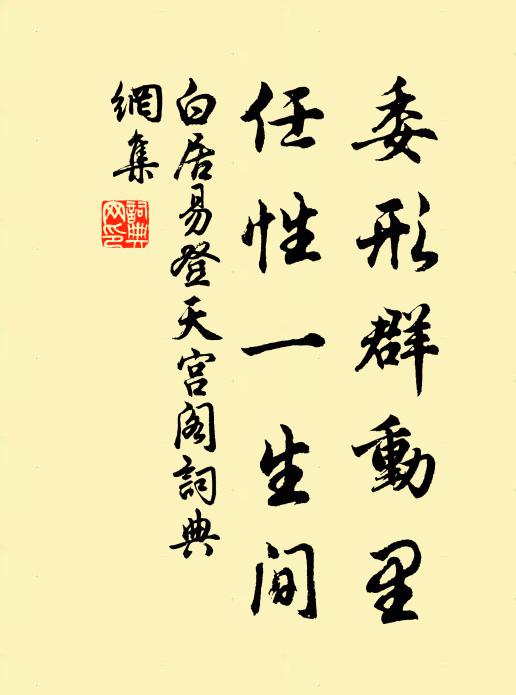 委形群動里
任性一生间
白居易登天宫阁詞典
網集
詞典
网印